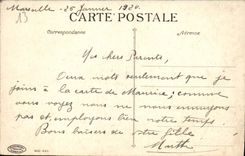 Marseille - 25 Janvier 1920.
13
CARTE POSTALE
Correspondance
Adresse
Mes chers Parents,
Deux mots seulement que je
joins à la carte de Maurice; comme
vous voyez nous ne nous ennuyons
pas et employons bien notre temps.
Bons baisers de votre fille